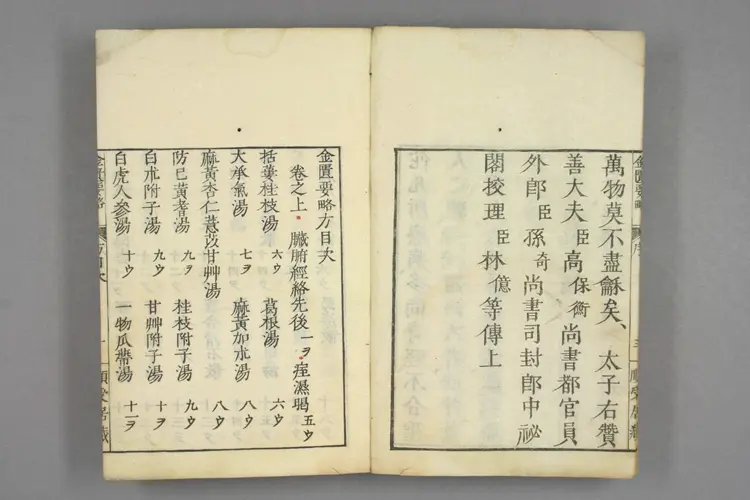 萬物莫不盡龢矣、太子右贊
善大夫臣高保衡尚書都官員
外郎臣孫奇尚書司封郎中祕
閣校理臣林億等傳上
金匱要略 序 三
金匱要略方目次
卷之上 臟腑經絡先後一ヲ 痙濕暍五ウ
括蔞桂枝湯六ウ 葛根湯六ウ
大承氣湯七ウ 麻黃加朮湯八ウ
麻黃杏仁薏苡甘艸湯八ウ
防已黃耆湯九ヲ 桂枝附子湯九ウ
白朮附子湯九ウ 甘艸附子湯十ヲ
白虎人參湯十ウ 一物瓜蒂湯十一ヲ
金匱要略 方目次 一